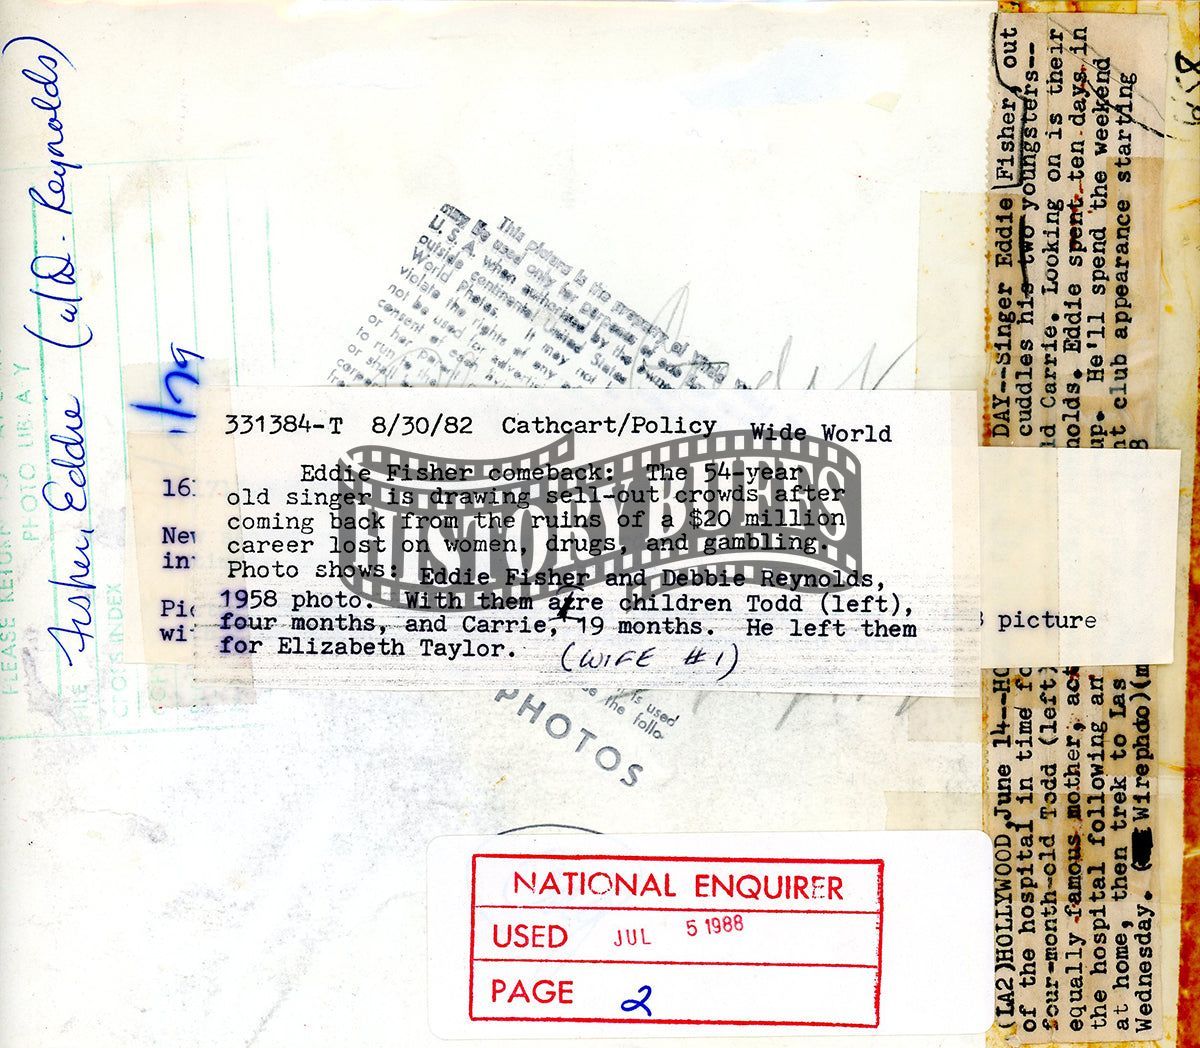 Fisher, Eddie (w/D. Reynolds)
1/79
PHOTO LIBRARY
This picture is the property of
may be used only by
U.S.A. when authorized by the
outside continental United States
World Photos. It may not
violate the rights of any
not be used for
consent of each
or her
to run
or shall
331384-T 8/30/82 Cathcart/Policy Wide World
Eddie Fisher comeback: The 54-year
old singer is drawing sell-out crowds after
coming back from the ruins of a $20 million
career lost on women, drugs, and gambling.
Photo shows: Eddie Fisher and Debbie Reynolds,
1958 photo. With them are children Todd (left),
four months, and Carrie, 19 months. He left them
for Elizabeth Taylor. (WIFE #1)
picture
HISTORY BEES
is used
the follo
PHOTOS
NATIONAL ENQUIRER
USED JUL 5 1988
PAGE 2
(LA2)HOLLYWOOD,June 14--HO DAY--Singer Eddie Fisher, out
of the hospital in time fo cuddles his two youngsters--
four-month-old Todd (left) d Carrie. Looking on is their
equally famous mother, act nolds. Eddie spent ten days in
the hospital following an up. He'll spend the weekend
at home, then trek to Las nt club appearance starting
Wednesday. ( Wirephoto)(m